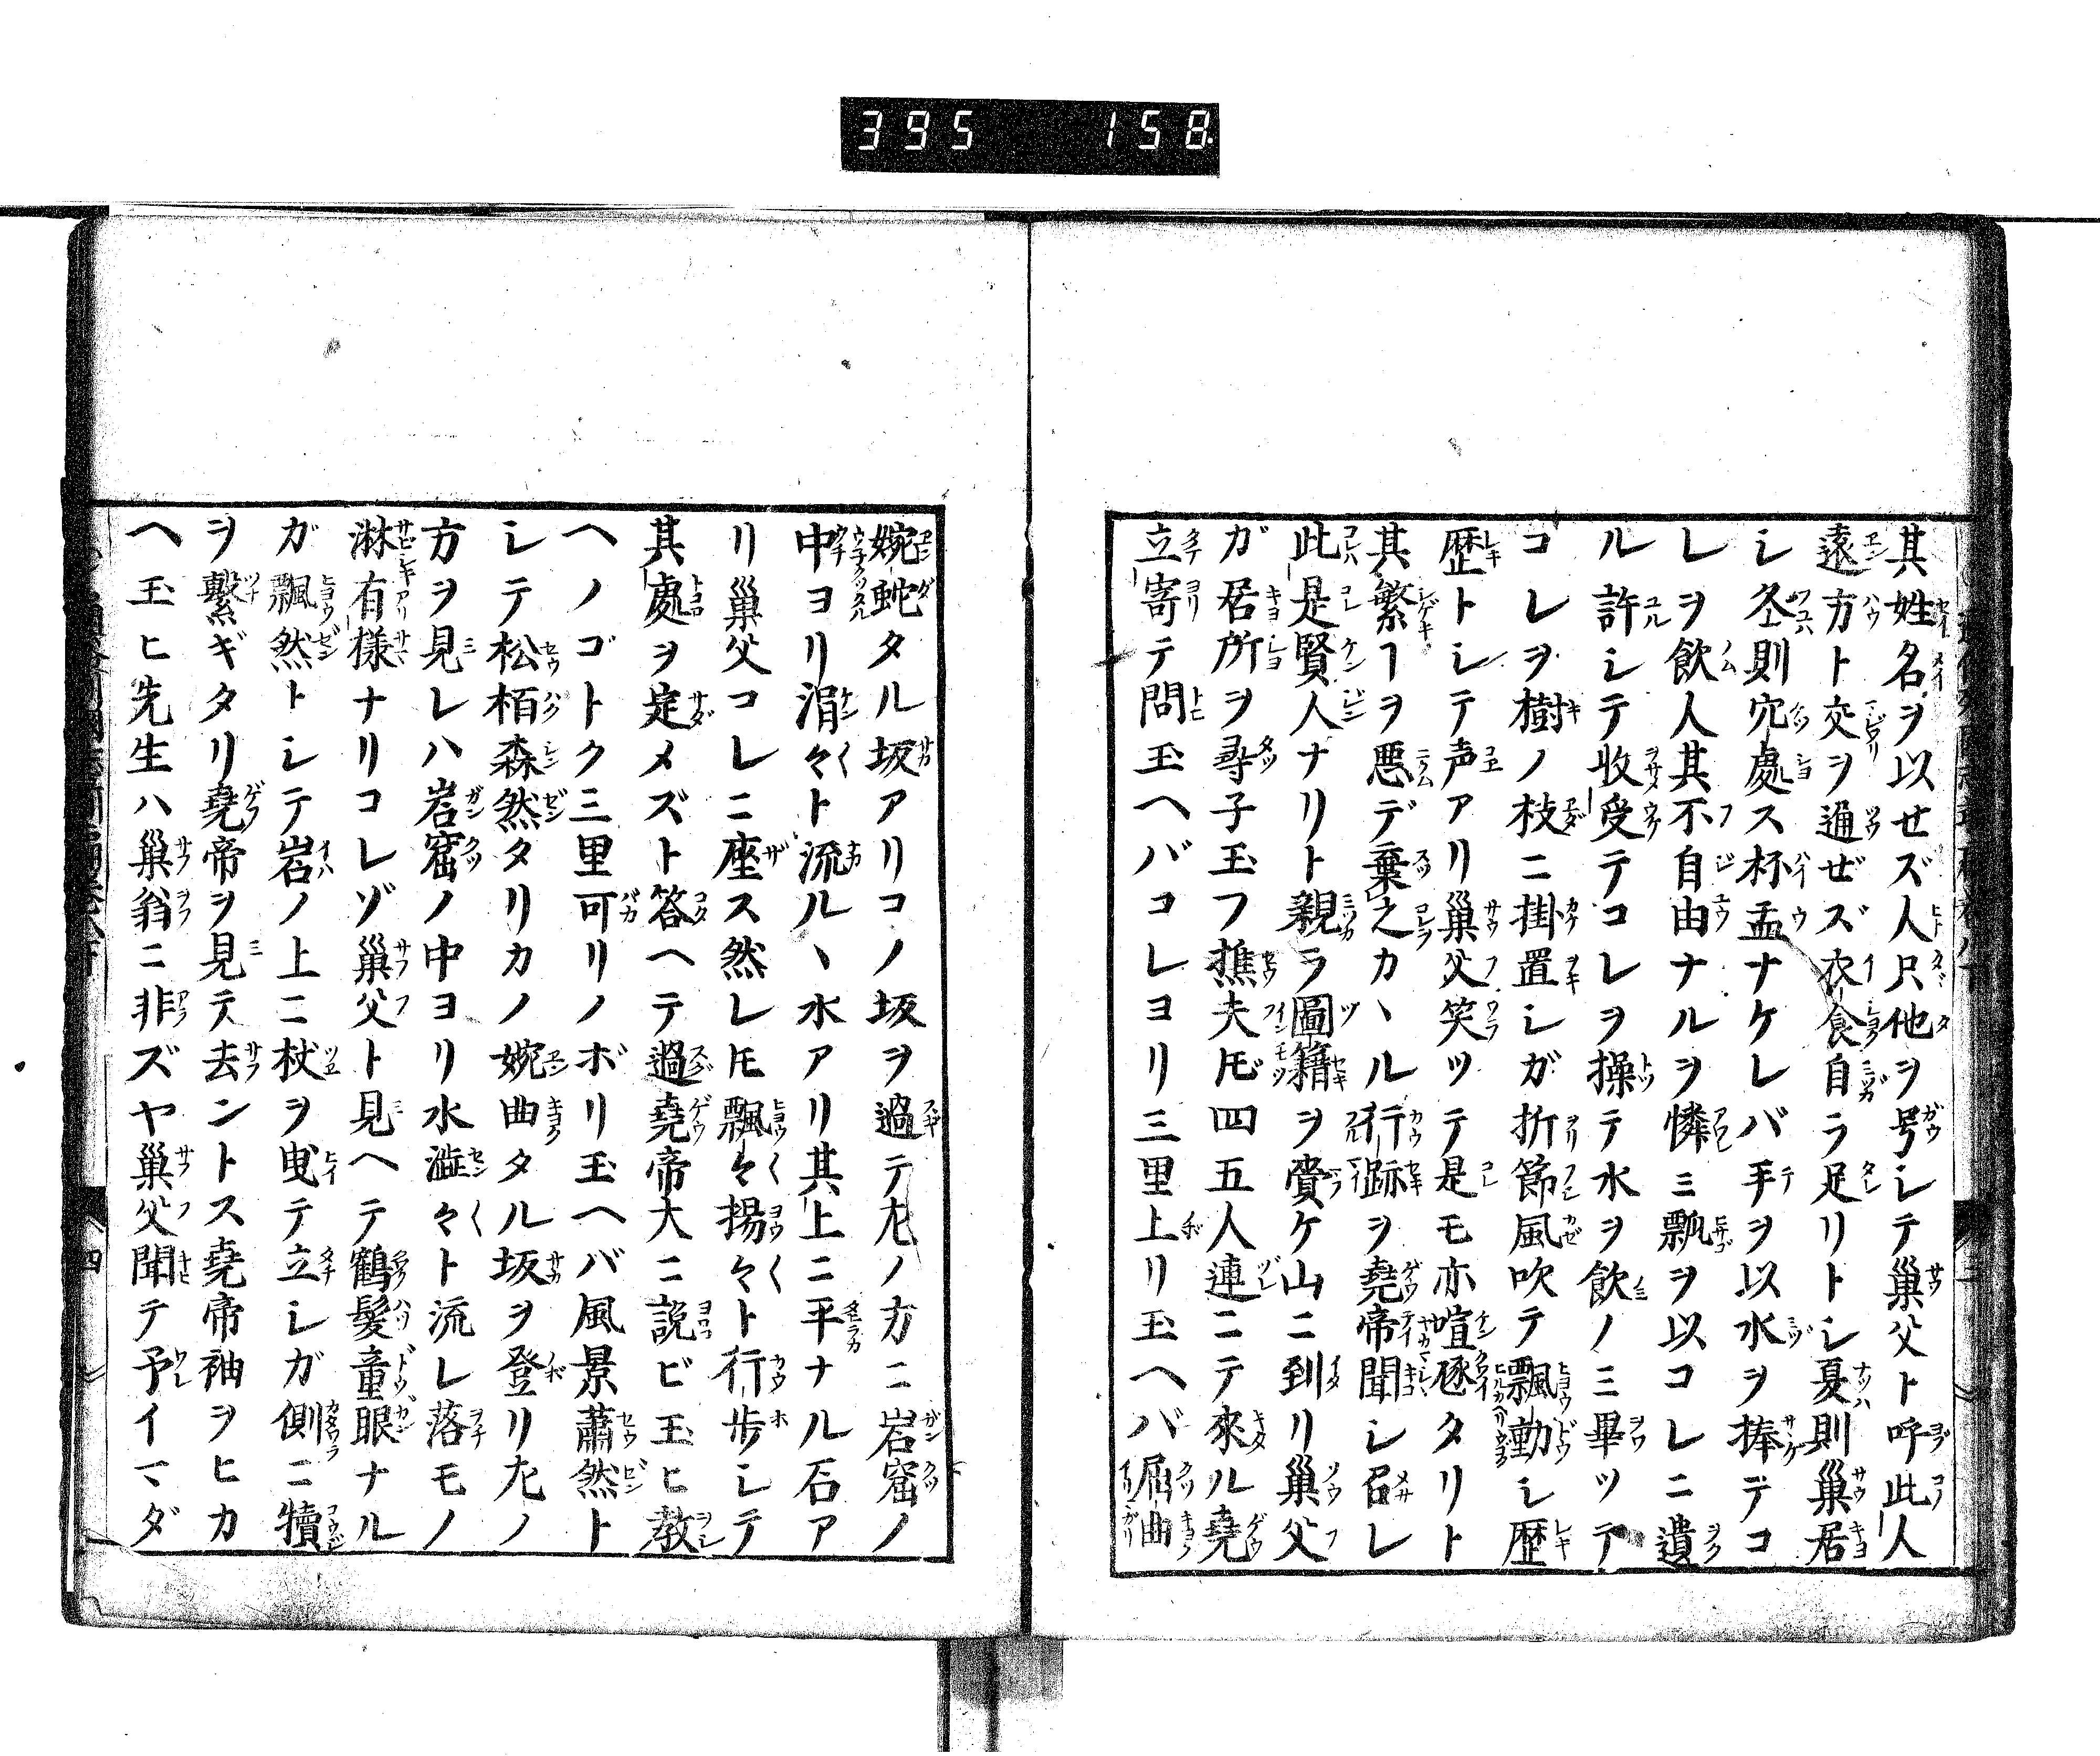 395 158
其姓名ヲ以せズ人只他ヲ号シテ巣父ト呼此人
遠方ト交ヲ通ぜズ衣食自ラ足リトシ夏則巣居
シ冬則穴處ス杯盂ナケレバ手ヲ以水ヲ捧テコ
レヲ飲人其不自由ナルヲ憐ミ瓢ヲ以コレニ遺
ル許シテ收受テコレヲ操テ水ヲ飲ノミ畢ツテ
コレヲ樹ノ枝ニ掛置シガ折節風吹テ飄動シ歴
歴トシテ声アリ巣父笑ツテ是モ亦喧豗タリト
其繁ヿヲ悪デ棄之カヽル行跡ヲ堯帝聞シ召レ
此是賢人ナリト親ラ圖籍ヲ賷ケ山ニ到リ巣父
ガ居所ヲ尋子玉フ樵夫𪜈四五人連ニテ來ル堯
立寄テ問玉ヘバコレヨリ三里上リ玉ヘバ屈曲
婉蛇タル坂アリコノ坂ヲ過テ左ノ方ニ岩窟ノ
中ヨリ涓々ト流ルヽ水アリ其上ニ平ナル石ア
リ巣父コレニ座ス然レ𪜈飄々揚々ト行歩シテ
其處ヲ定メズト答ヘテ過堯帝大ニ説ビ玉ヒ教
ヘノゴトク三里可リノボリ玉ヘバ風景蕭然ト
シテ松栢森然タリカノ婉曲タル坂ヲ登リ左ノ
方ヲ見レハ岩窟ノ中ヨリ水澁々ト流レ落モノ
淋有様ナリコレゾ巣父ト見ヘテ鶴髪童眼ナル
ガ飄然トシテ岩ノ上ニ杖ヲ曳テ立シガ側ニ犢
ヲ繋ギタリ堯帝ヲ見テ去ントス堯帝袖ヲヒカ
ヘ玉ヒ先生ハ巣翁ニ非ズヤ巣父聞テ予イマダ
四